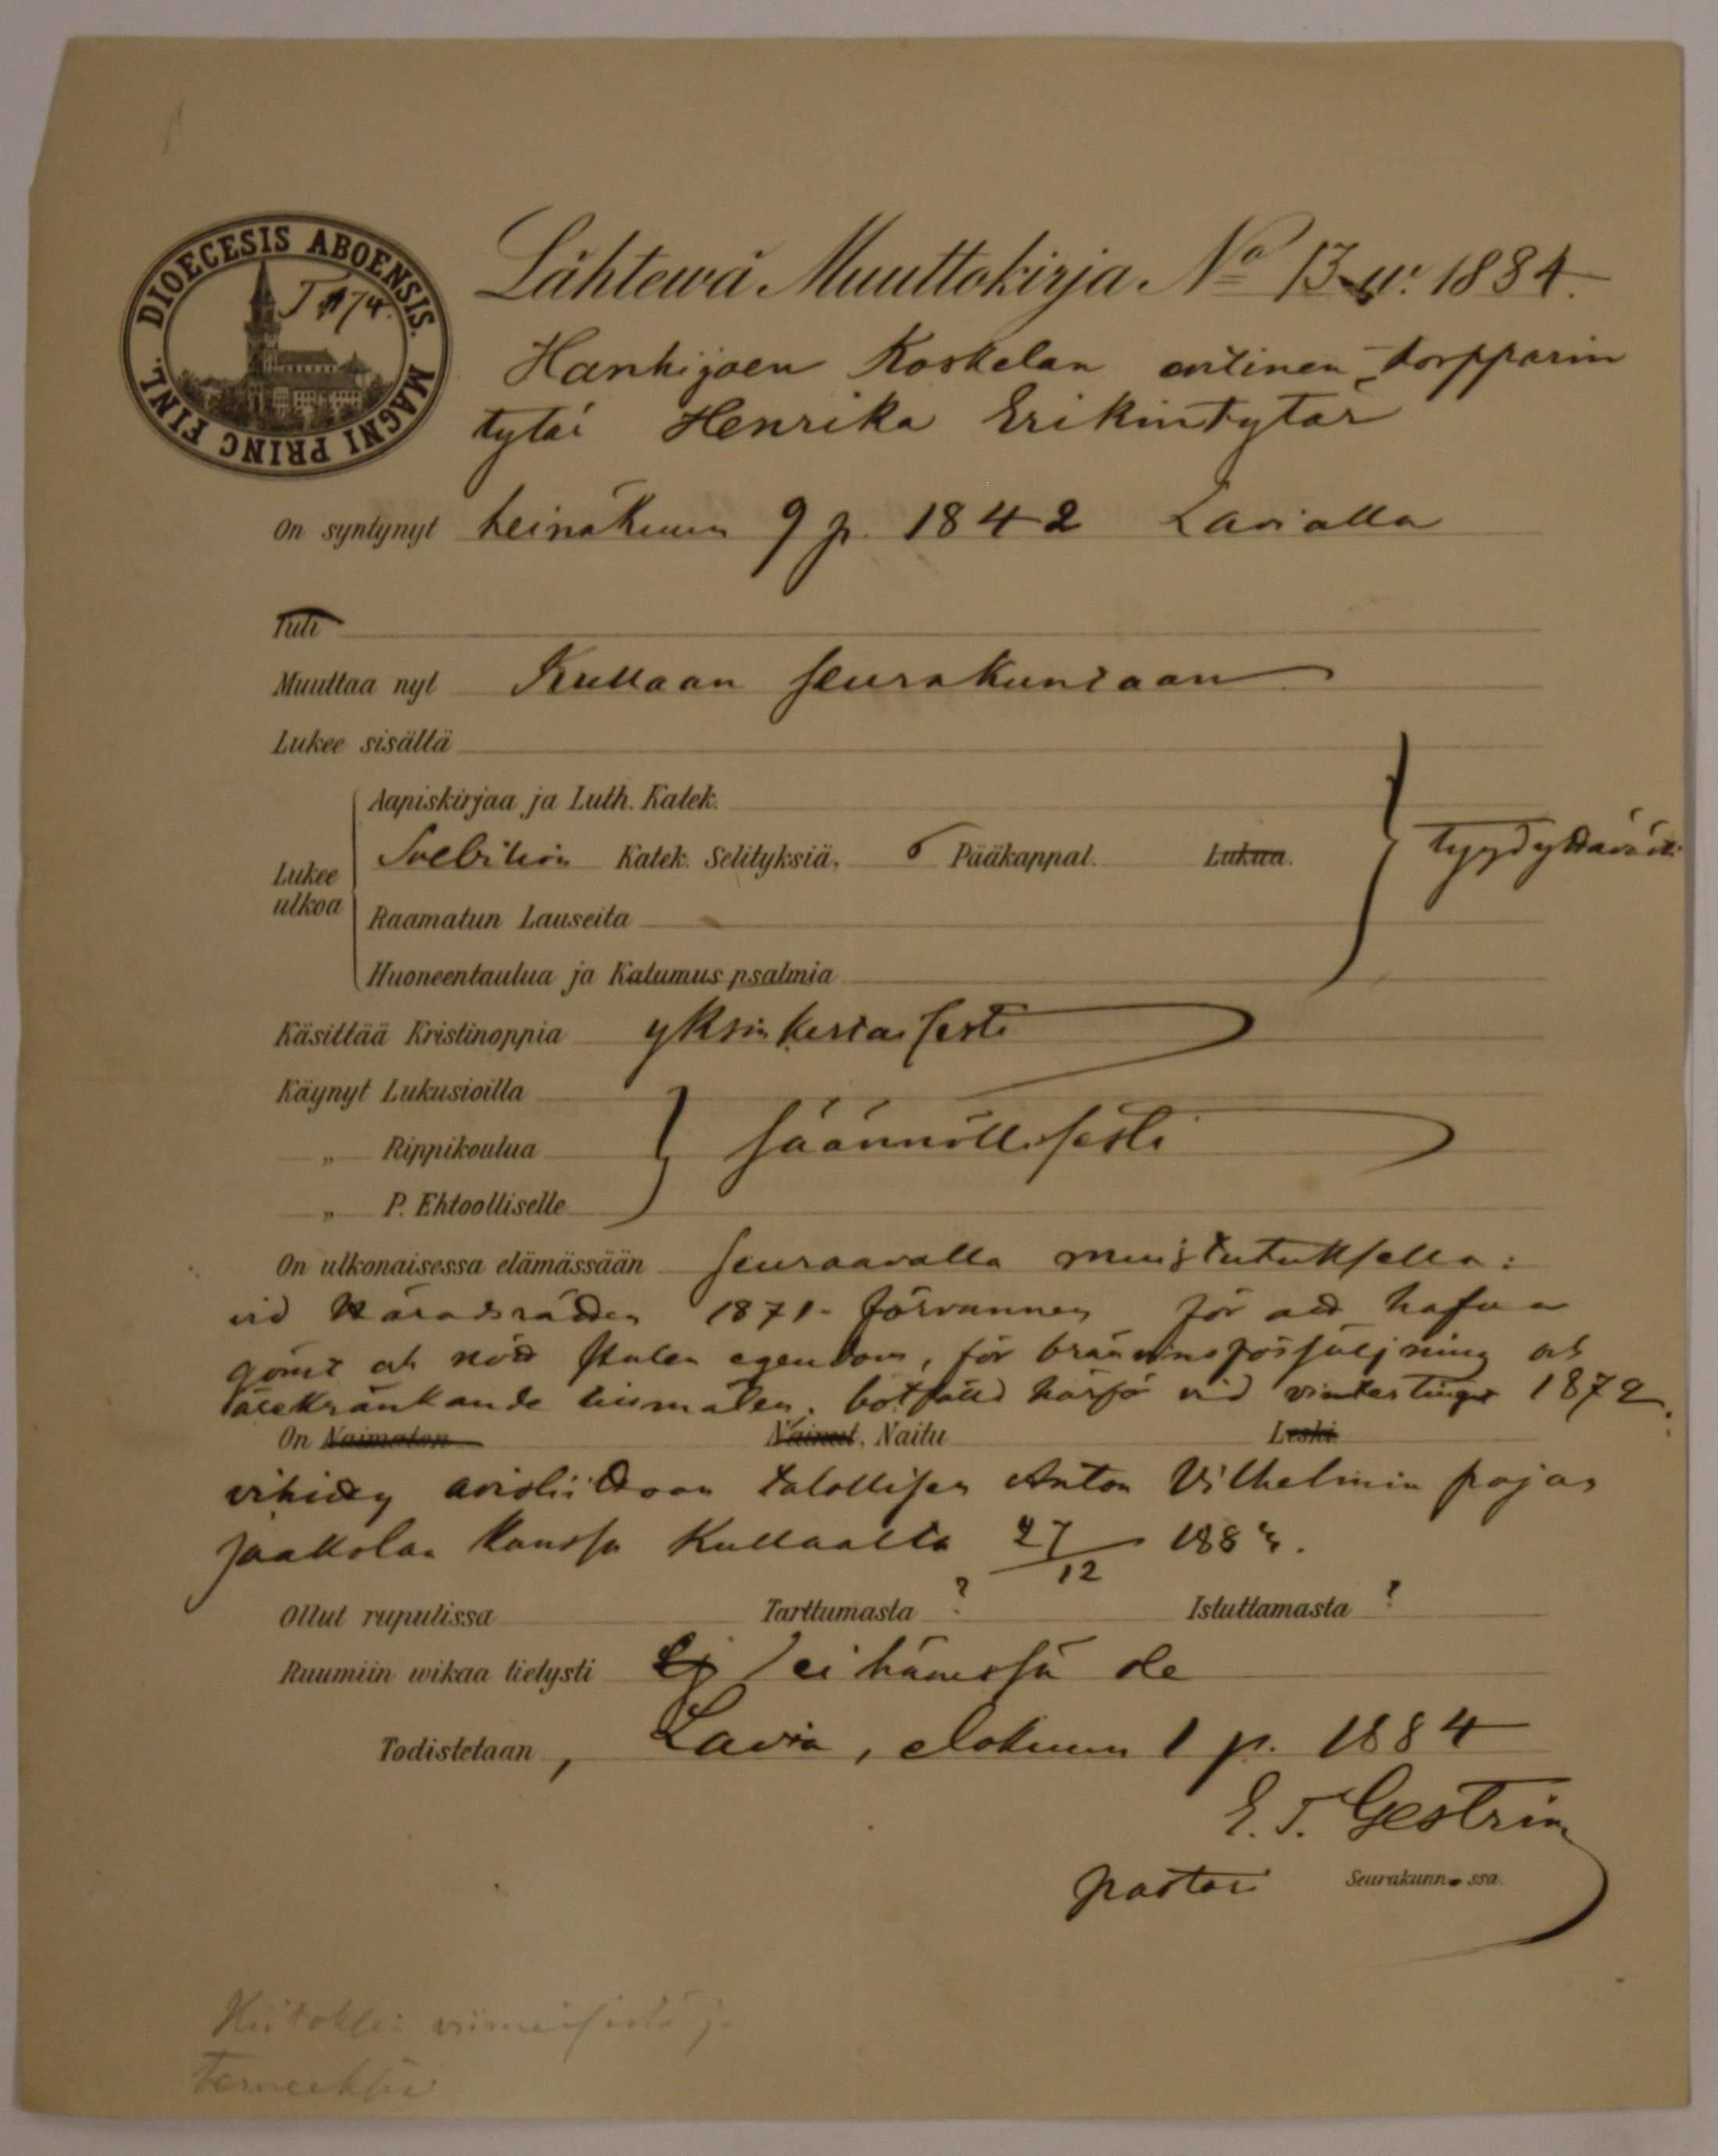 DIOECESIS ABOENSIS. MAGNI PRINC FINL.
Lähtewä Muuttokirja No 13 w. 1884.
Hanhijoen Koskelan entinen torpparin
tytär Henrika Erikintytär
On syntynyt heinäkuun 9 p. 1842 Lavialla
Tuli
Muuttaa nyt Kullaan seurakuntaan
Lukee sisältä
Aapiskirjaa ja Luth. Katek.
Lukee ulkoa
Svebilion Katek. Selityksiä, 6 Pääkappal. Lukua. tyydyttävästi
Raamatun Lauseita
Huoneentaulua ja Katumus psalmia
Käsittää Kristinoppia yksinkertaisesti
Käynyt Lukusioilla
„ Rippikoulua säännöllisesti
„ P. Ehtoolliselle
On ulkonaisessa elämässään seuraavalla muistutuksella:
vid Häradsrätten 1871 förvunnen för att hafva
gömt och stulen egendom, för bränvinsförsäljning och
ärekränkande tillmälen, botfälld härför vid vintertinget 1872.
On Naimaton Nainut, Naitu Leski
vihitty avioliittoon talollisen Anton Vilhelmin pojan
Jaakolan kanssa Kullaalta 27/12 1883.
Ollut rupulissa Tarttumasta ? Istuttamasta ?
Ruumiin wikaa tietysti Ej / ei hänessä ole
Todistetaan, Lavia, elokuun 1 p. 1884
E. T. Gestrin
pastori Seurakunn. ssa.